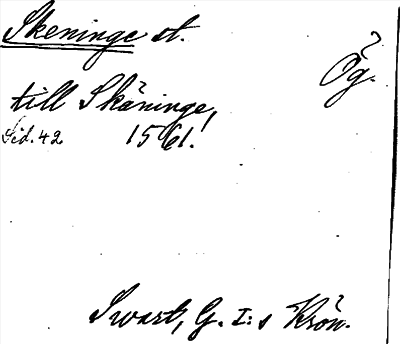 Skeninge st.
Ög.
till Skäninge,
Sid. 42 1561.
Swart, G. I:s Krön.